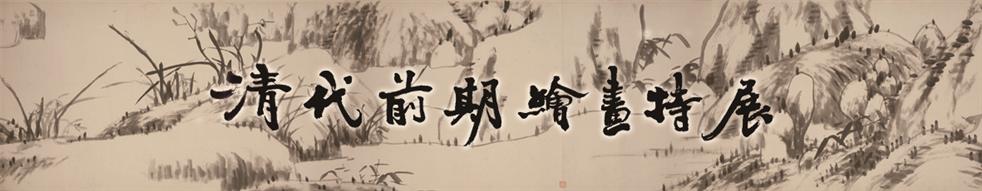 清代前期繪畫特展